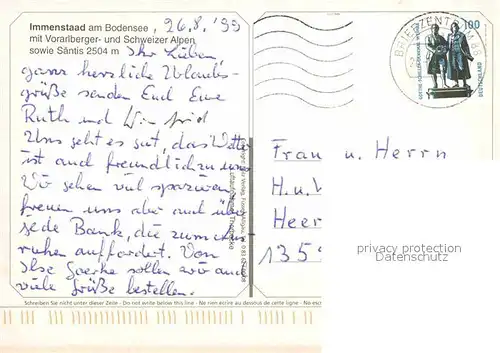 Immenstaad am Bodensee, 26.8.'99
mit Vorarlberger- und Schweizer Alpen
sowie Säntis 2504 m
Ihr Lieben,
ganz herzliche Urlaubs-
grüße senden Euch Eure
Ruth und
Uns geht es gut, das Wetter
ist auch freundlich zu uns
Wir gehen viel spazieren
freuen uns aber auch über
jede Bank, die zum
ruhen auffordert. Von
Ilse Goerke sollen wir auch
viele Grüße bestellen.
BRIEFZENTRUM 88
100
DEUTSCHLAND
Frau u. Herrn
H.u.
Heer
135
privacy protection
Datenschutz
Schreiben Sie nicht unter dieser Zeile - Do not write below this line - Ne rien écrire au dessous de cette ligne - No esc